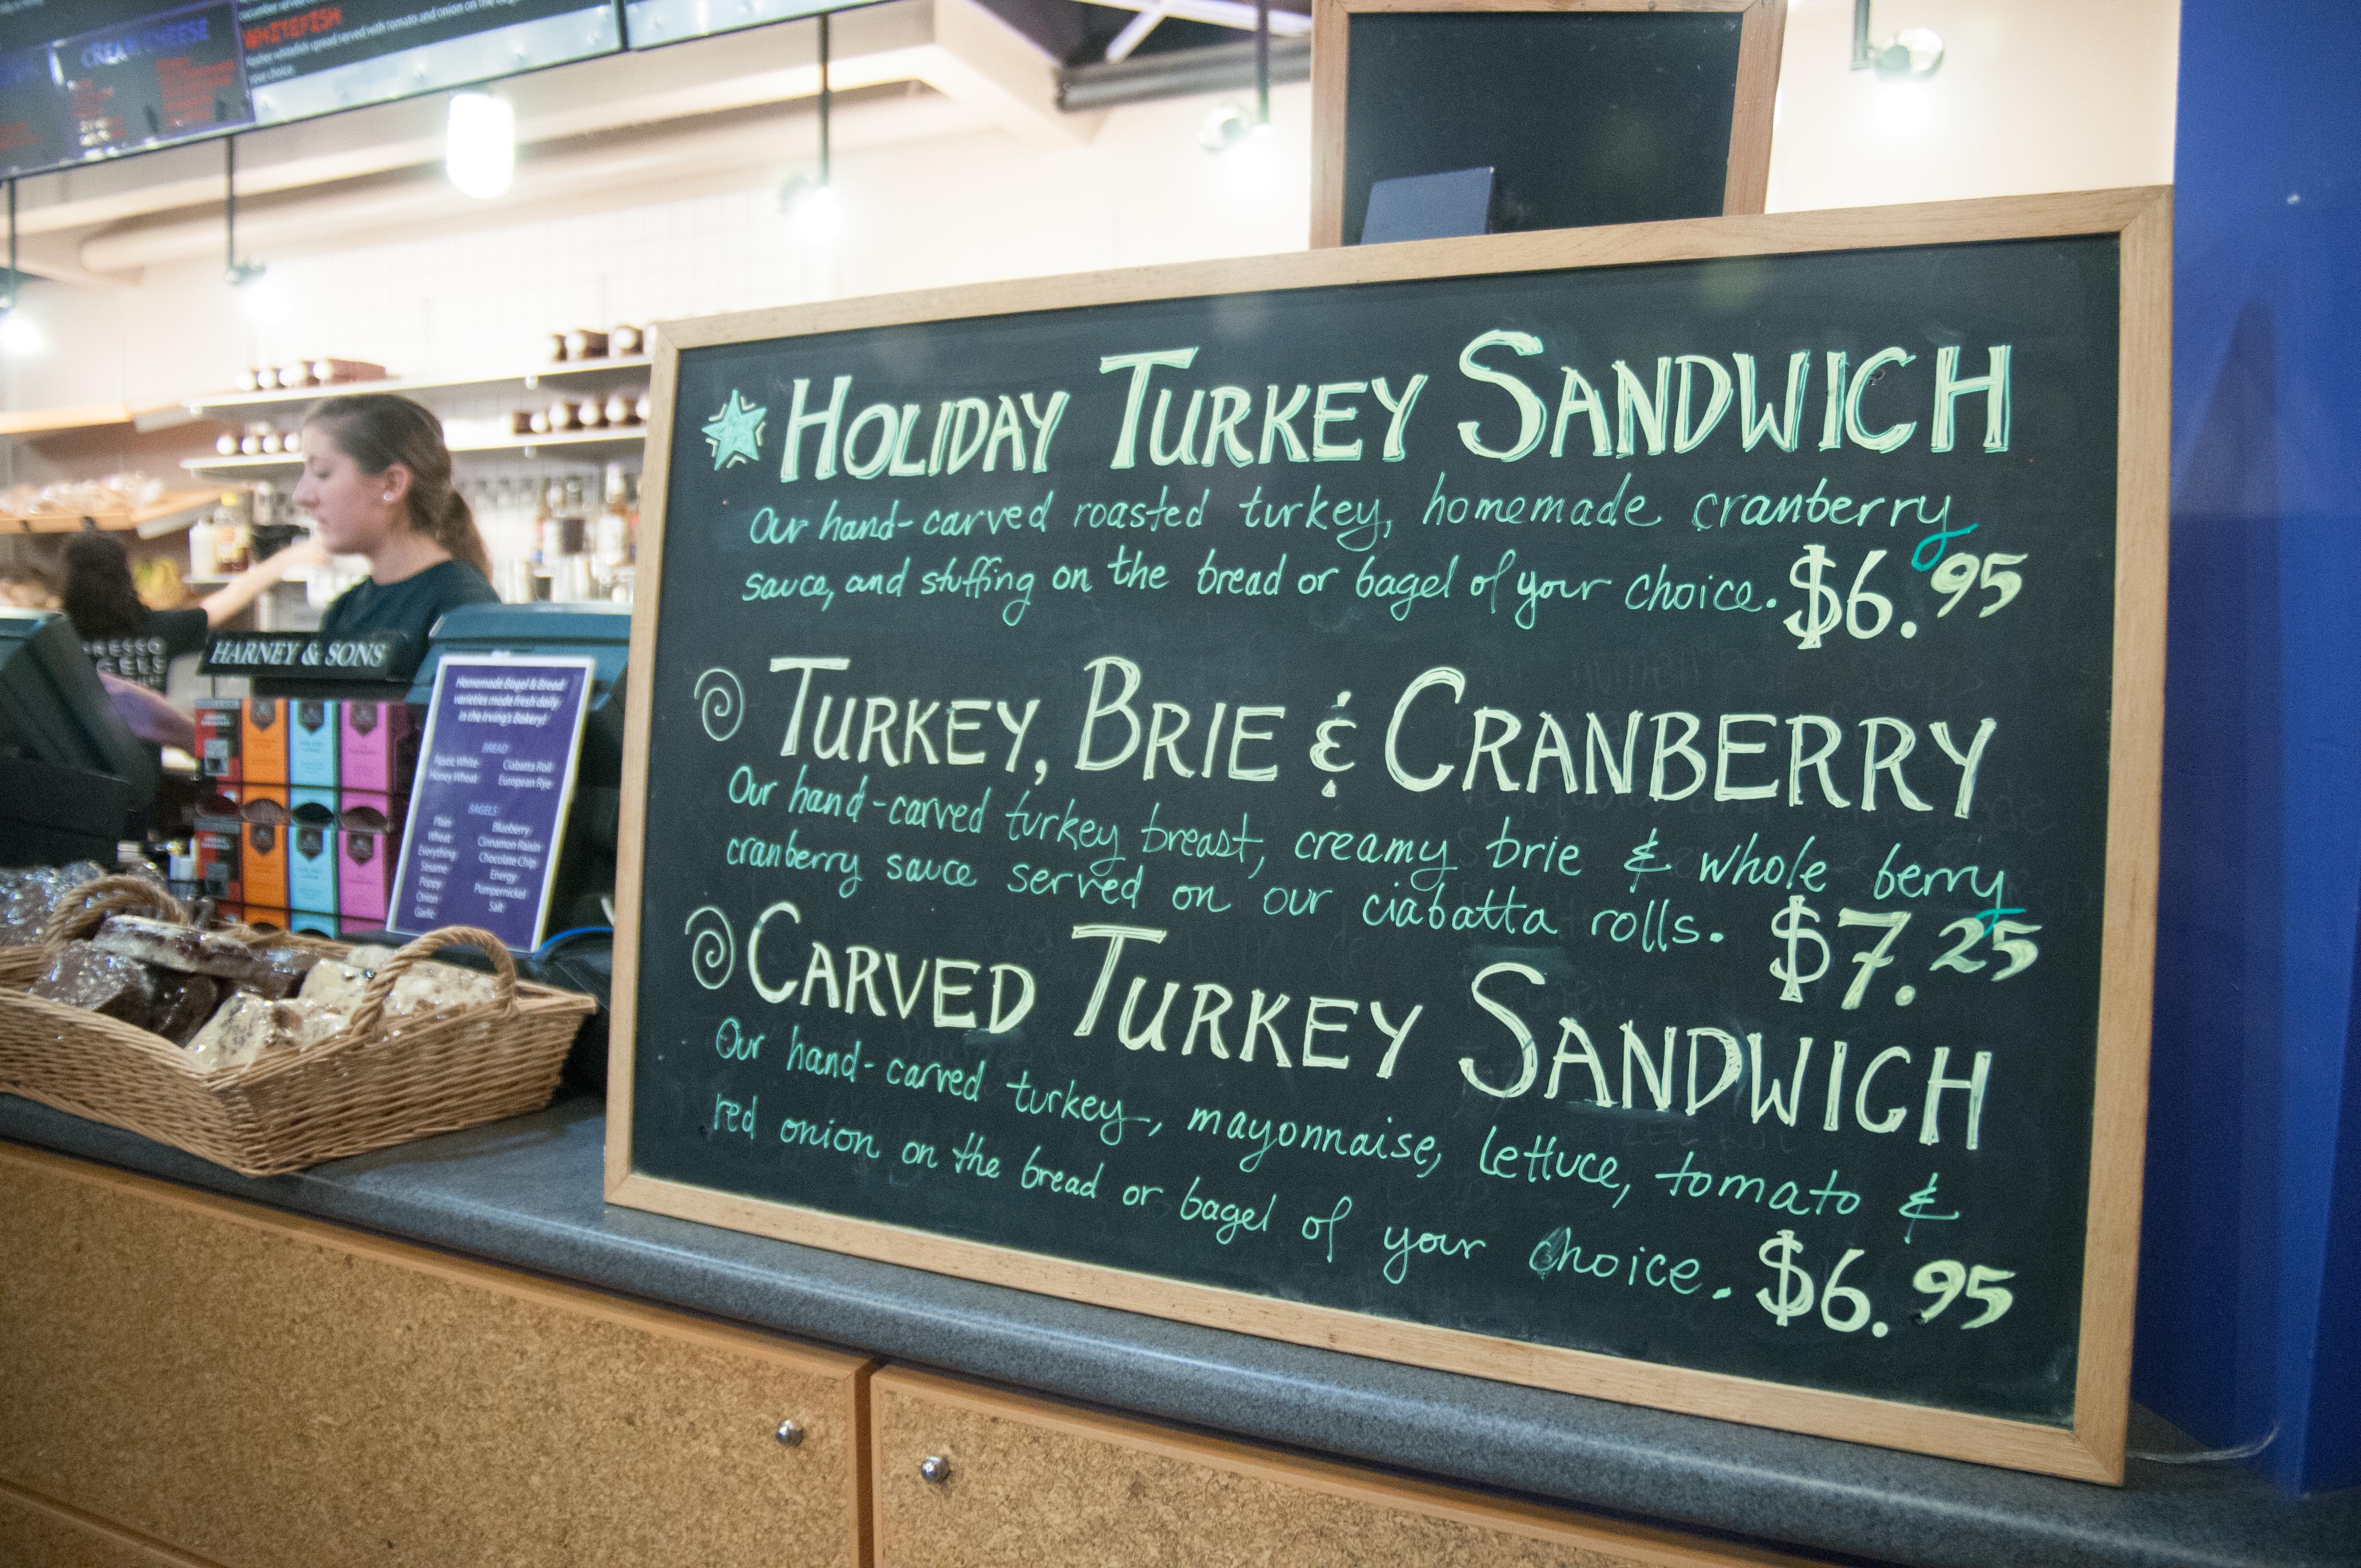 CREAM CHEESE
WHITEFISH
Kosher whitefish spread served with tomato and onion on the
your choice.
★ HOLIDAY TURKEY SANDWICH
Our hand-carved roasted turkey, homemade cranberry
sauce, and stuffing on the bread or bagel of your choice. $6.95
TURKEY, BRIE & CRANBERRY
Our hand-carved turkey breast, creamy brie & whole berry
cranberry sauce served on our ciabatta rolls. $7.25
CARVED TURKEY SANDWICH
Our hand-carved turkey, mayonnaise, lettuce, tomato &
red onion on the bread or bagel of your choice. $6.95
HARNEY & SONS
Homemade Bagel & Bread
varieties made fresh daily
in the Irving's Bakery!
BREAD
Rustic White Ciabatta Roll
Honey Wheat European Rye
BAGELS
Plain Blueberry
Wheat Cinnamon Raisin
Everything Chocolate Chip
Sesame Energy
Poppy Pumpernickel
Onion Salt
Garlic